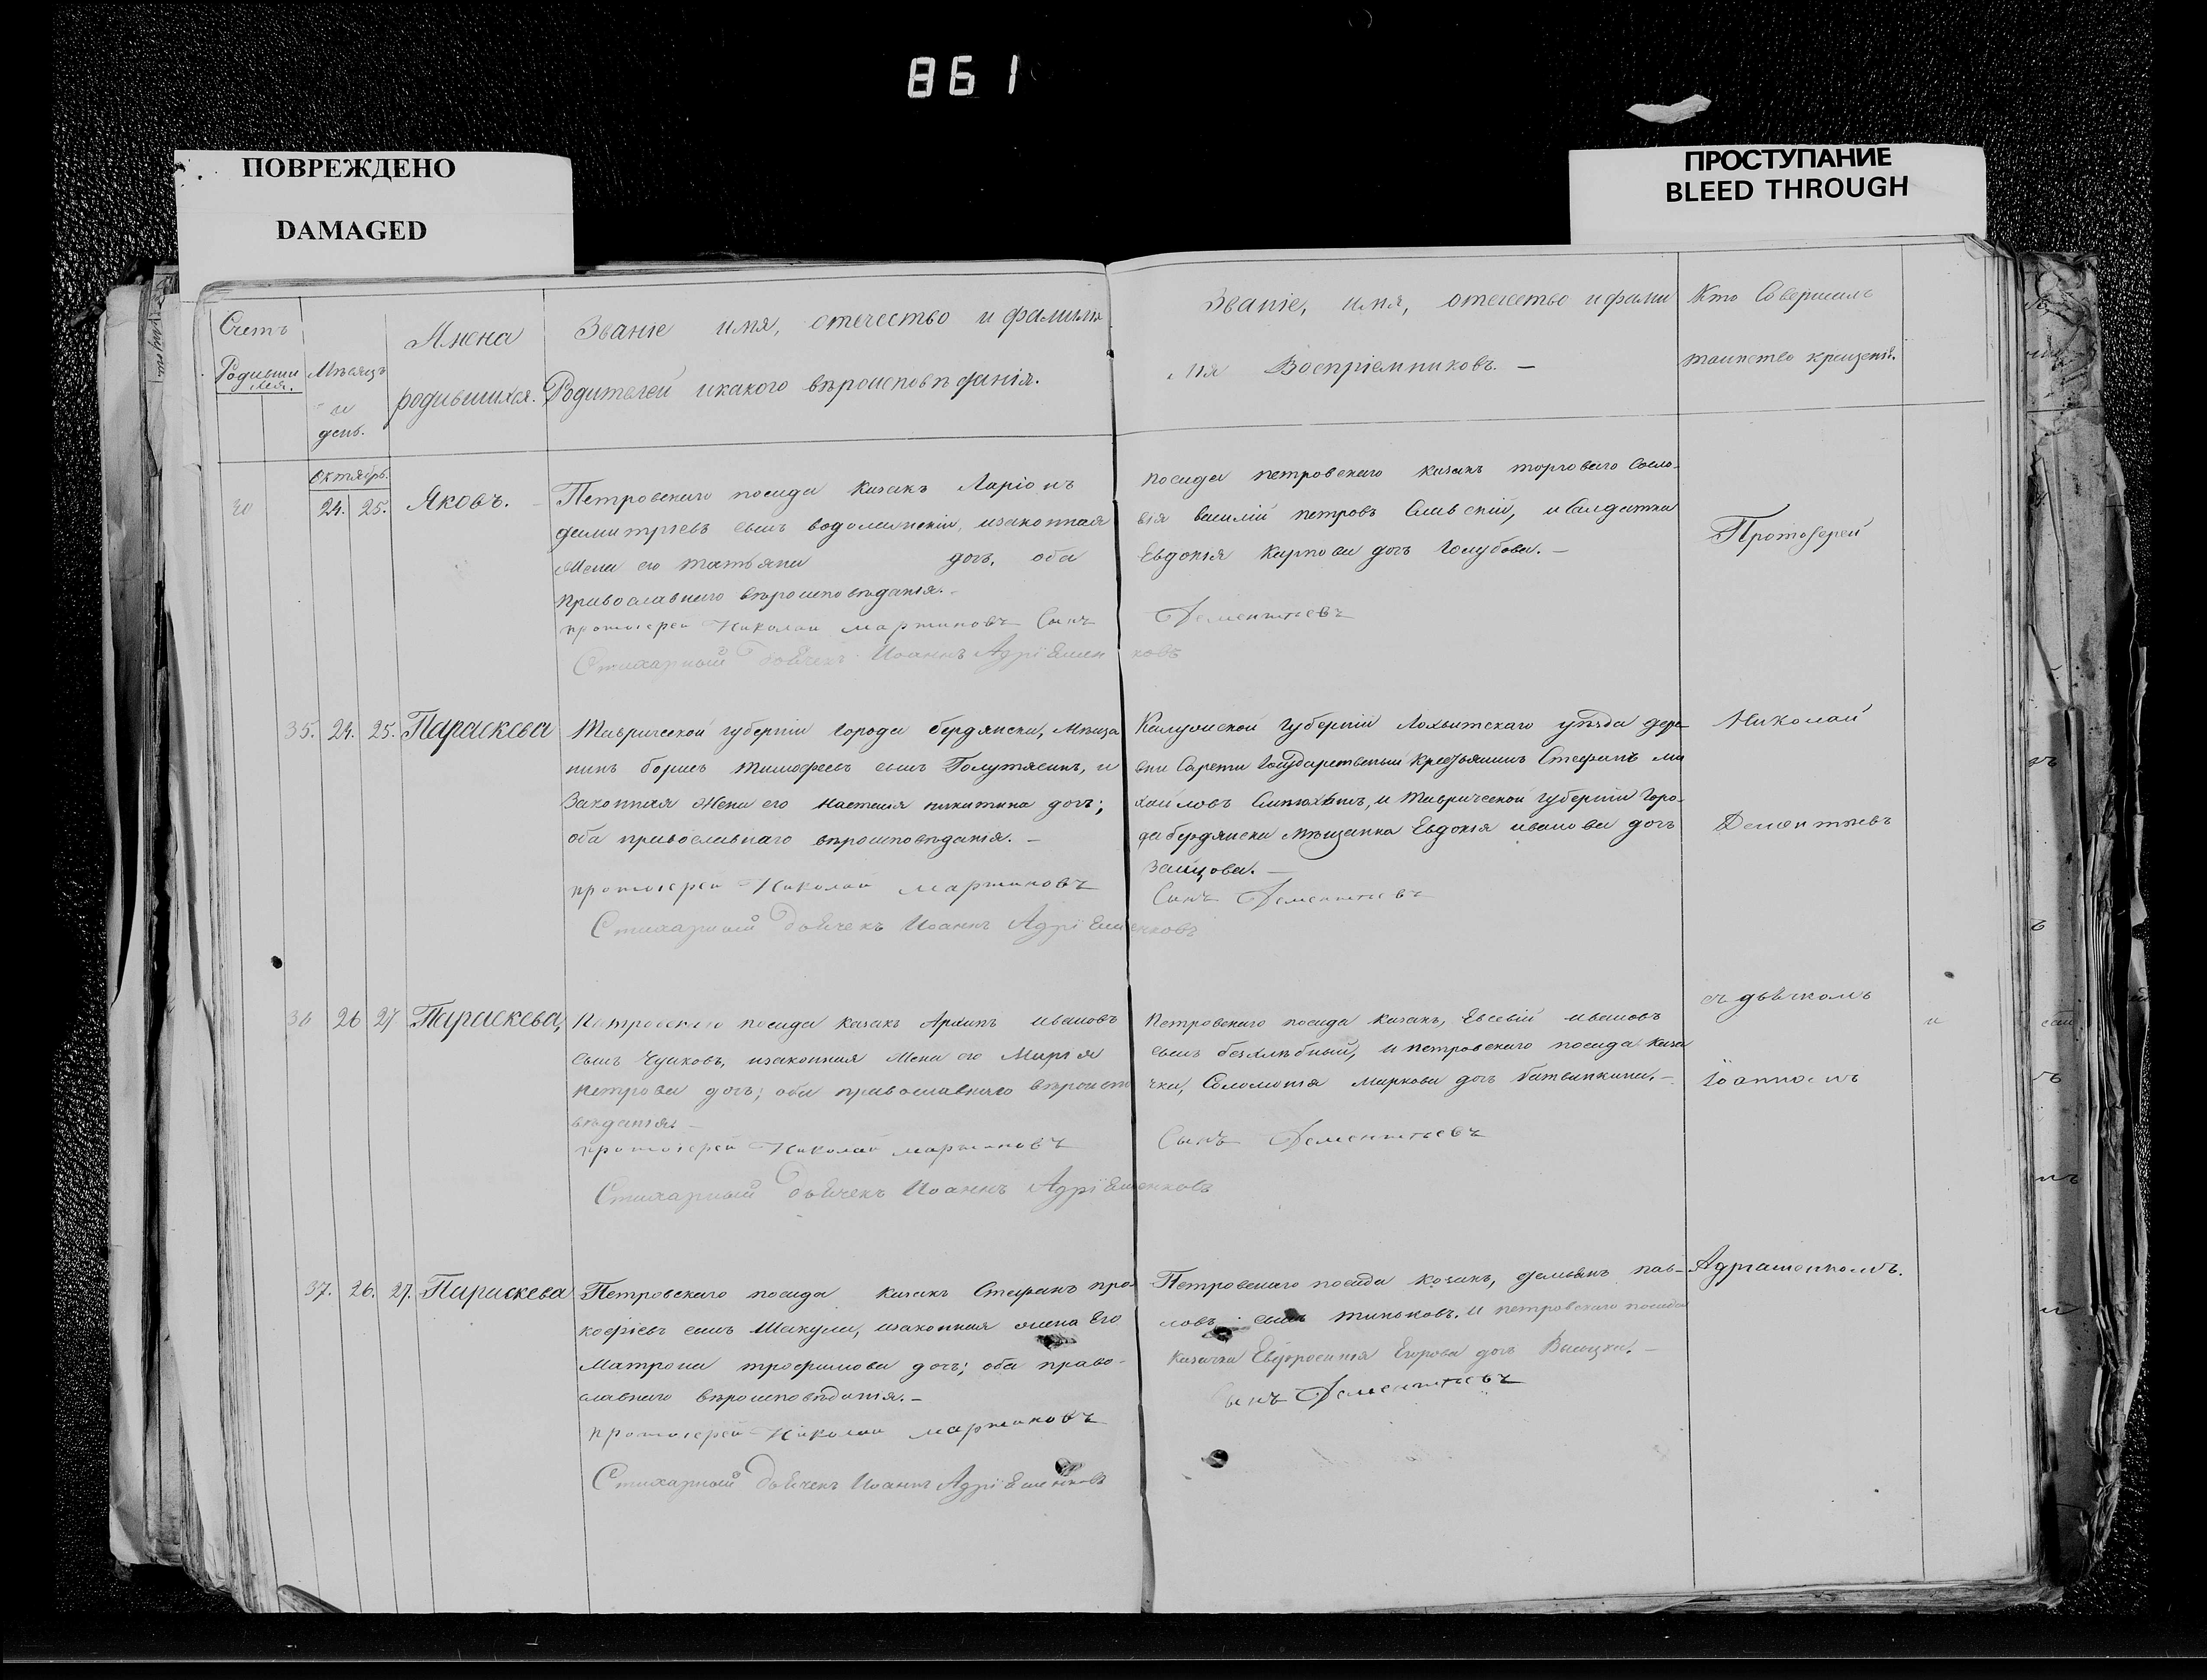 861
ПОВРЕЖДЕНО
DAMAGED
ПРОСТУПАНИЕ
BLEED THROUGH
Счетъ
Родивши
хся.
Мѣсяцъ
и
день.
Имена
родившихся.
Званіе имя, отечество и фамилія
Родителей и какого вѣроисповѣданія.
Званіе, имя, отечество и фами
лія Воспріемниковъ. —
Кто Совершалъ
таинство крещенія.
Октябрь.
20 24. 25. Яковъ.
Петровскаго посада казакъ Ларіонъ
димитріевъ сынъ водолажскій, изаконная
Жена его татьяна дочь, оба
православнаго вѣроисповѣданія. –
протоіерей Николай мартиновъ Сынъ Дементьевъ
Стихарный дьячекъ Иоаннъ Адріяшенковъ
посада петровскаго казакъ торговаго Сосло-
вія василій петровъ Славскій, и Салдатка
Евдокія Карпова дочь Голубова. —
Протоіерей
35. 24. 25. Параскева
Таврической губерніи города бердянска, Мѣща
нинъ борисъ тимофеевъ сынъ, и
Законная Жена его настасія никитина дочь;
оба православнаго вѣроисповѣданія. —
протоіерей Николай мартиновъ
Стихарный дьячекъ Иоаннъ Адріяшенковъ
губерніи уѣзда дере-
вни Государственый Крестьянинъ Стефанъ ми
хайловъ, и Таврической губерніи Горо-
да бердянска Мѣщанка Евдокія иванова дочь
Зайцова. —
Сынъ Дементьевъ
Николай
Дементьевъ
36 26 27 Параскева,
Петровскаго посада казакъ Архипъ ивановъ
сынъ Чуйковъ, изаконная Жена его Марія
петрова дочь; оба православнаго вѣроиспо
вѣданія. –
протоіерей Николай мартиновъ
Стихарный дьячекъ Иоаннъ Адріяшенковъ
Петровскаго посада казакъ, Евсевій ивановъ
сынъ безхлѣбный, и петровскаго посада каза
чка, Соломонія маркова дочь. –
Сынъ Дементьевъ
съ дьячкомъ
Іоанномъ
37. 26. 27. Параскева
Петровскаго посада казакъ Стефанъ про-
кофіевъ сынъ Шакула, изаконная жена Его
Матрона трофимова дочь; оба право-
славнаго вѣроисповѣданія. –
протоіерей Николай мартиновъ
Стихарный дьячекъ Иоаннъ Адріяшенковъ
Петровскаго посада казакъ, демьянъ пав-
ловъ сынъ тиньковъ. И петровскаго посада
казачка Евфросинія Егорова дочь. –
Сынъ Дементьевъ
Адріашенкомъ.